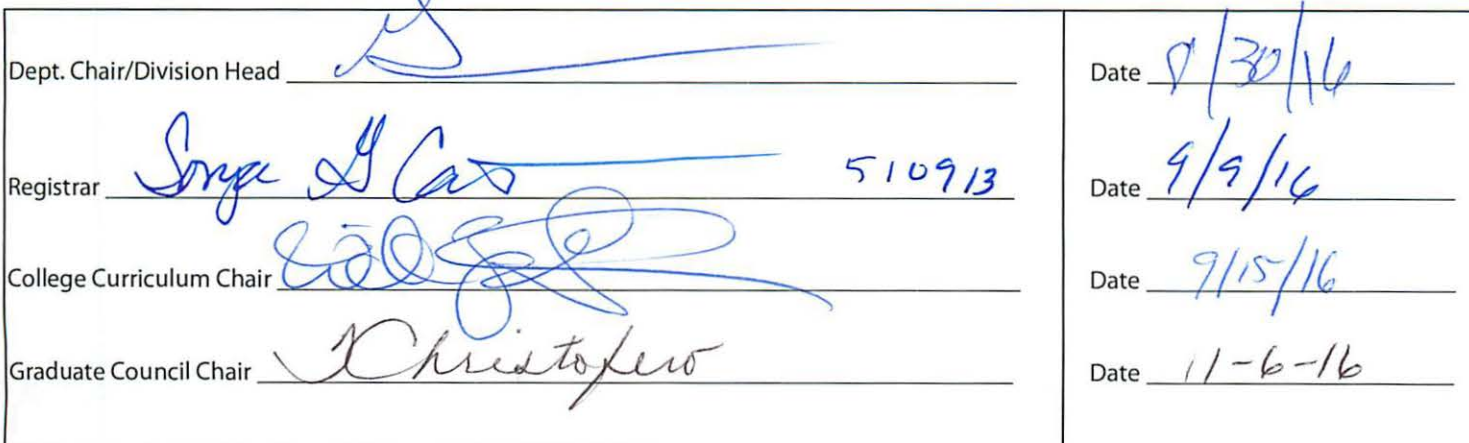 Dept. Chair/Division Head Date 8/30/16
Registrar Sonja G Ca 510913 Date 9/9/16
College Curriculum Chair Date 9/15/16
Graduate Council Chair Christofero Date 11-6-16